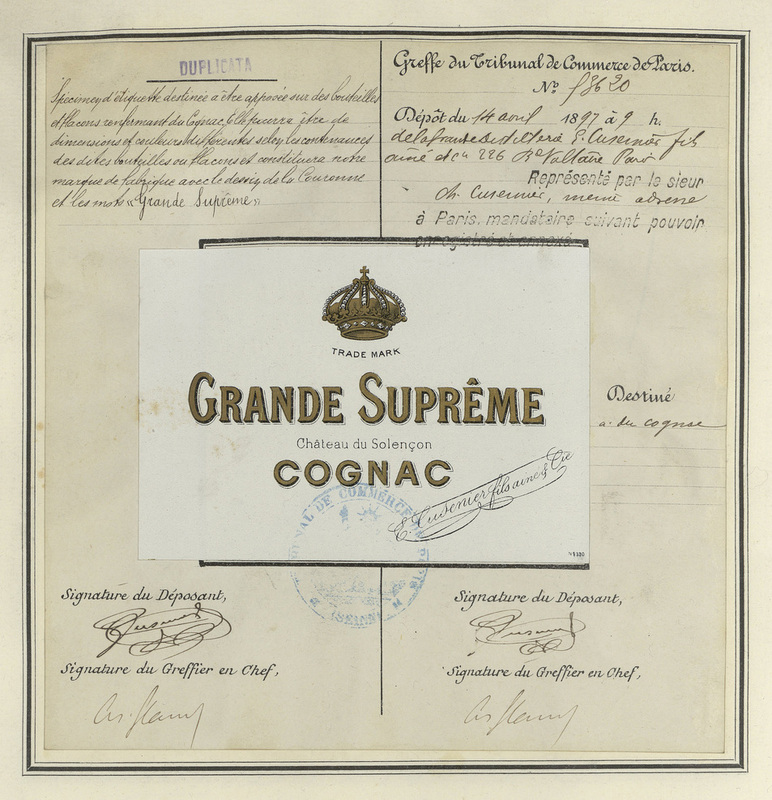 DUPLICATA
Spécimen d'étiquette destinée à être apposée sur des bouteilles
et flacons renfermant du Cognac, Elle pourra être de
dimensions et couleurs différentes selon les contenances
des dites bouteilles ou flacons et constituera notre
marque de fabrique avec le dessin de la Couronne
et les mots «Grande Suprême»
Greffe du Tribunal de Commerce de Paris.
No 53620
Dépôt du 14 avril 1897 à 9 h.
de la grande Distillerie E. Cusenier fils
ainé et Cie 226 Bd Voltaire Paris
Représenté par le sieur
Ch. Cusenier, même adresse
à Paris, mandataire suivant pouvoir
enregistré et annexé
TRADE MARK
GRANDE SUPRÊME
Château du Solençon
COGNAC
E. Cusenier fils ainé & Cie
Destiné
à du cognac
TRIBUNAL DE COMMERCE
(SEINE)
Signature du Déposant,
Signature du Greffier en Chef,
Signature du Déposant,
Signature du Greffier en Chef,